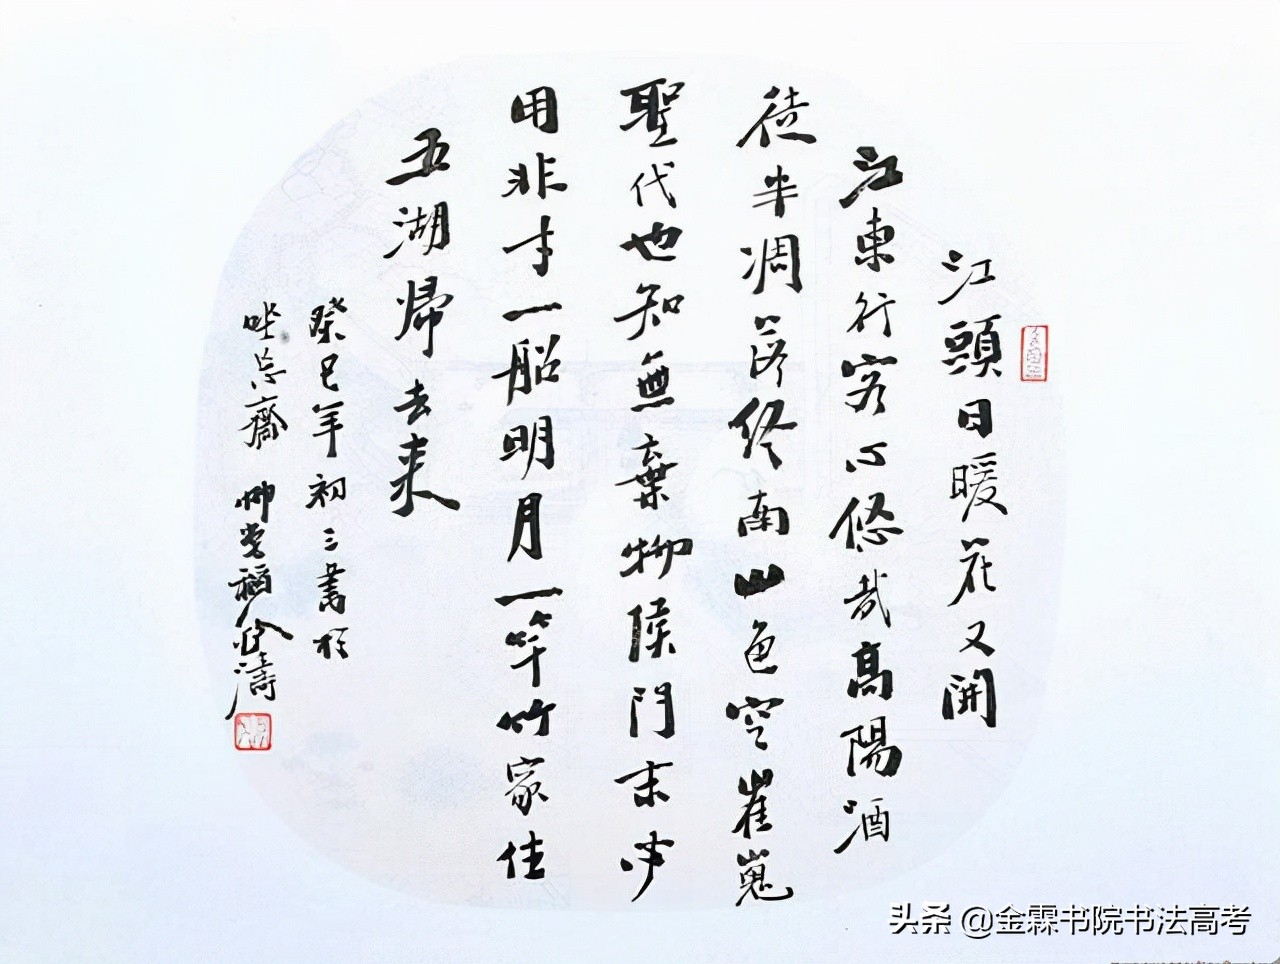 江頭日暖花又開
江東行客心悠哉高陽酒
徒半凋落終南山色空崔嵬
聖代也知無棄物侯門未必
用非才一船明月一竿竹家住
五湖歸去来
癸巳年初三書於
齋 濤
头条 @金霖书院书法高考